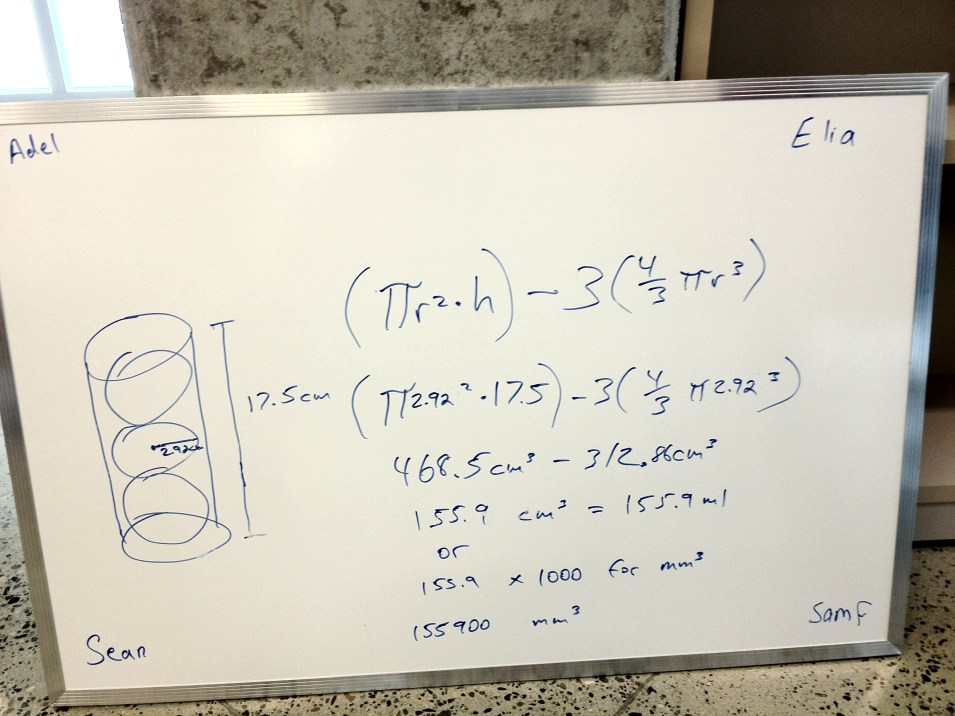 Adel
Elia
(πr²·h) - 3(4/3 πr³)
17.5cm
(π2.92²·17.5) - 3(4/3 π2.92³)
2.92cm
468.5cm³ - 312.86cm³
155.9 cm³ = 155.9ml
or
155.9 x 1000 for mm³
155900 mm³
Sean
Sam F